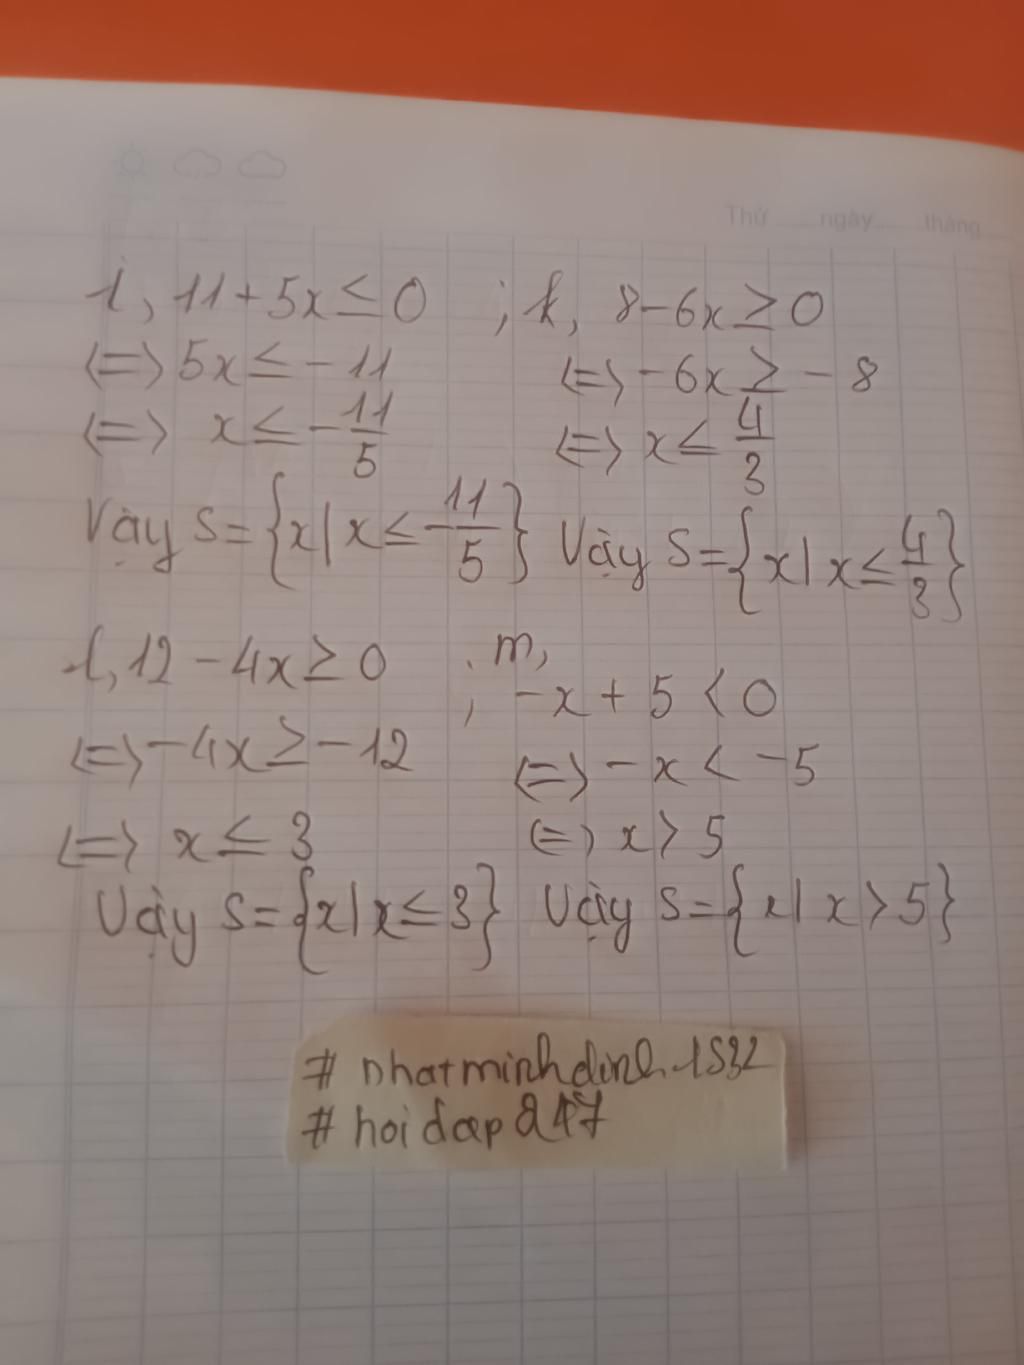 Thứ ..... ngày ..... tháng
i, 11+5x ≤ 0 ; k, 8-6x ≥ 0
<=> 5x ≤ -11 <=> -6x ≥ -8
<=> x ≤ -11/5 <=> x ≤ 4/3
Vậy S={x| x ≤ -11/5} Vậy S={x| x ≤ 4/3}
l, 12 - 4x ≥ 0 ; m,
-x + 5 < 0
<=> -4x ≥ -12 <=> -x < -5
<=> x ≤ 3 <=> x > 5
Vậy S={x| x ≤ 3} Vậy S={x| x > 5}
# nhatminhdinh1532
# hoidap247